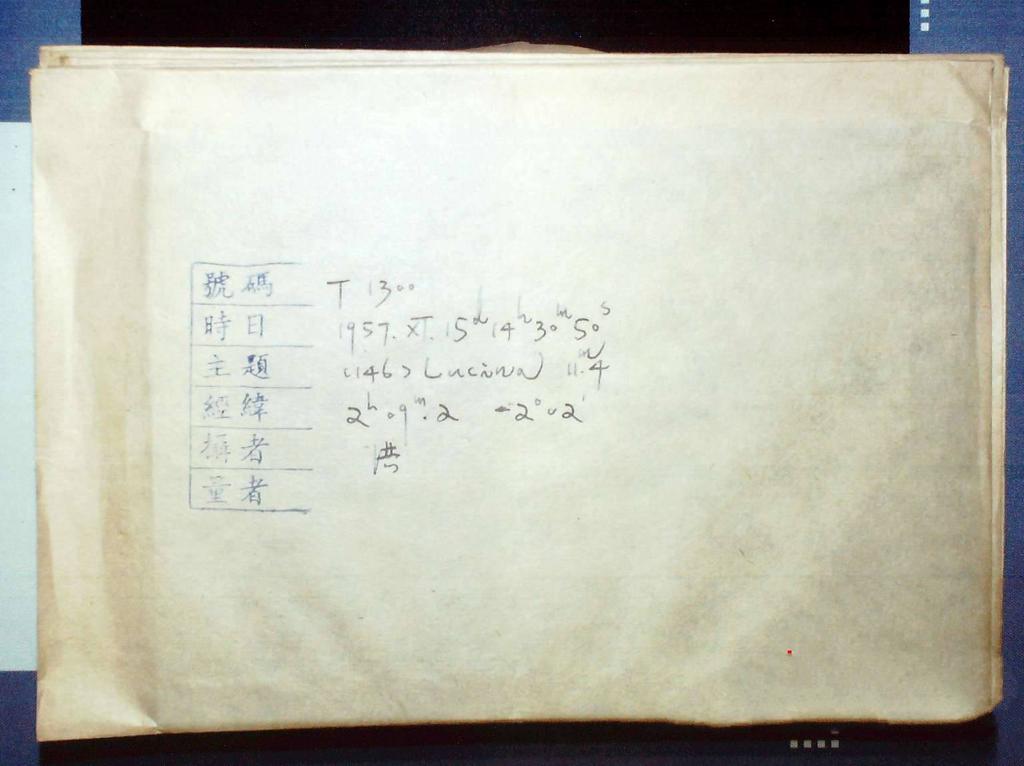 號碼 T 1300
時日 1957. XI. 15ᵈ 14ʰ 30ᵐ 50ˢ
主題 (1146) Lucina 11ᵐ.4
經緯 2ʰ 09ᵐ.2 -2°02'
攝者
量者